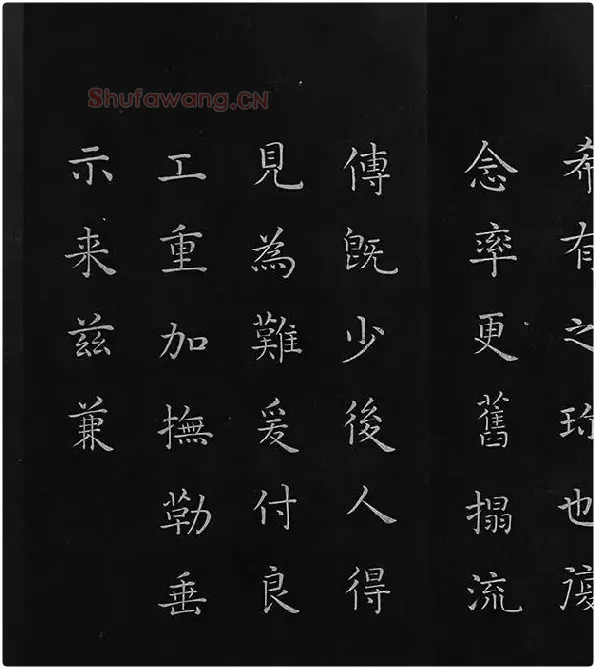 Shufawang.CN
希有之珎也
念率更舊搨流
傳既少後人得
見為難爰付良
工重加撫勒垂
示来茲兼